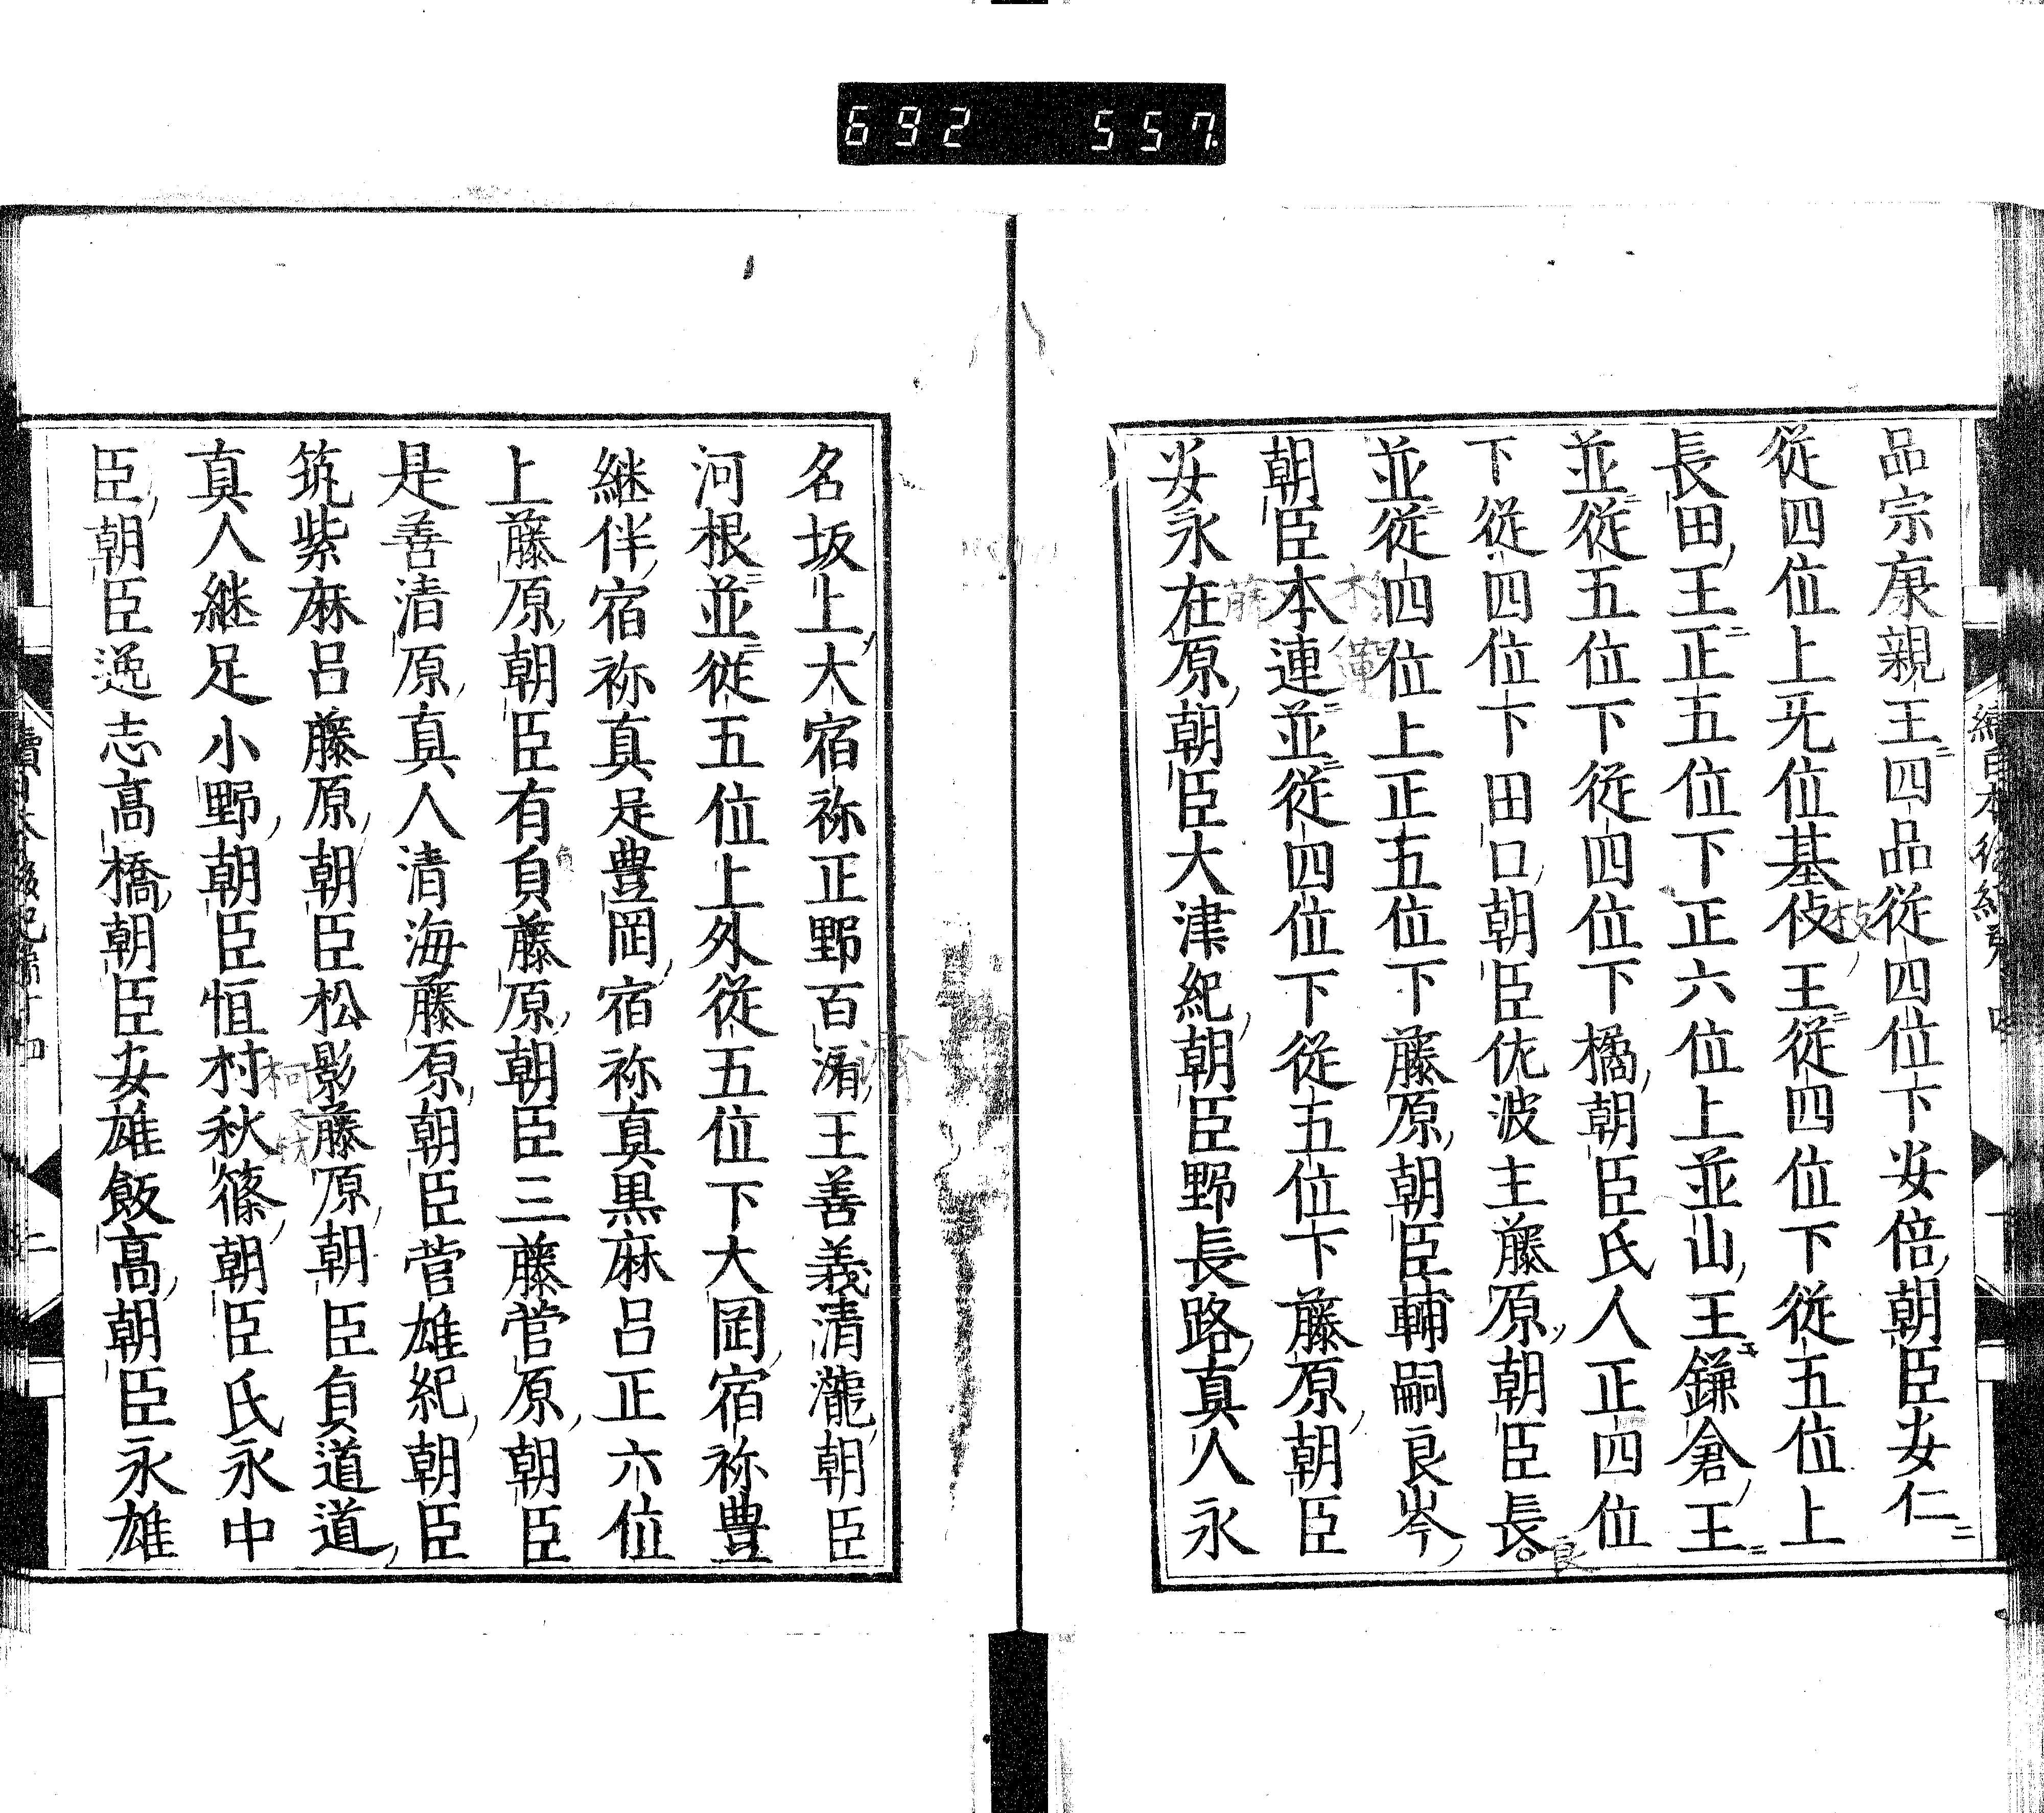 692 557
品宗康親王四品從四位下安倍朝臣安仁
從四位上无位基伎王從四位下從五位上
長田王正五位下正六位上並山王鎌倉王
並從五位下從四位下橘朝臣氏人正四位
下從四位下田口朝臣佐波主藤原朝臣長
並從四位上正五位下藤原朝臣輔嗣良岑
朝臣木連並從四位下從五位下藤原朝臣
安永在原朝臣大津紀朝臣野長路真人永
名坂上大宿祢正野百済王善義清瀧朝臣
河根並從五位上外從五位下大岡宿祢豊
継伴宿祢真足豊岡宿祢真黒麻呂正六位
上藤原朝臣有貞藤原朝臣三藤菅原朝臣
是善清原真人清海藤原朝臣菅雄紀朝臣
筑紫麻呂藤原朝臣松影藤原朝臣貞道道
真人継足小野朝臣恒村秋篠朝臣氏永中
臣朝臣逸志高橋朝臣安雄飯高朝臣永雄